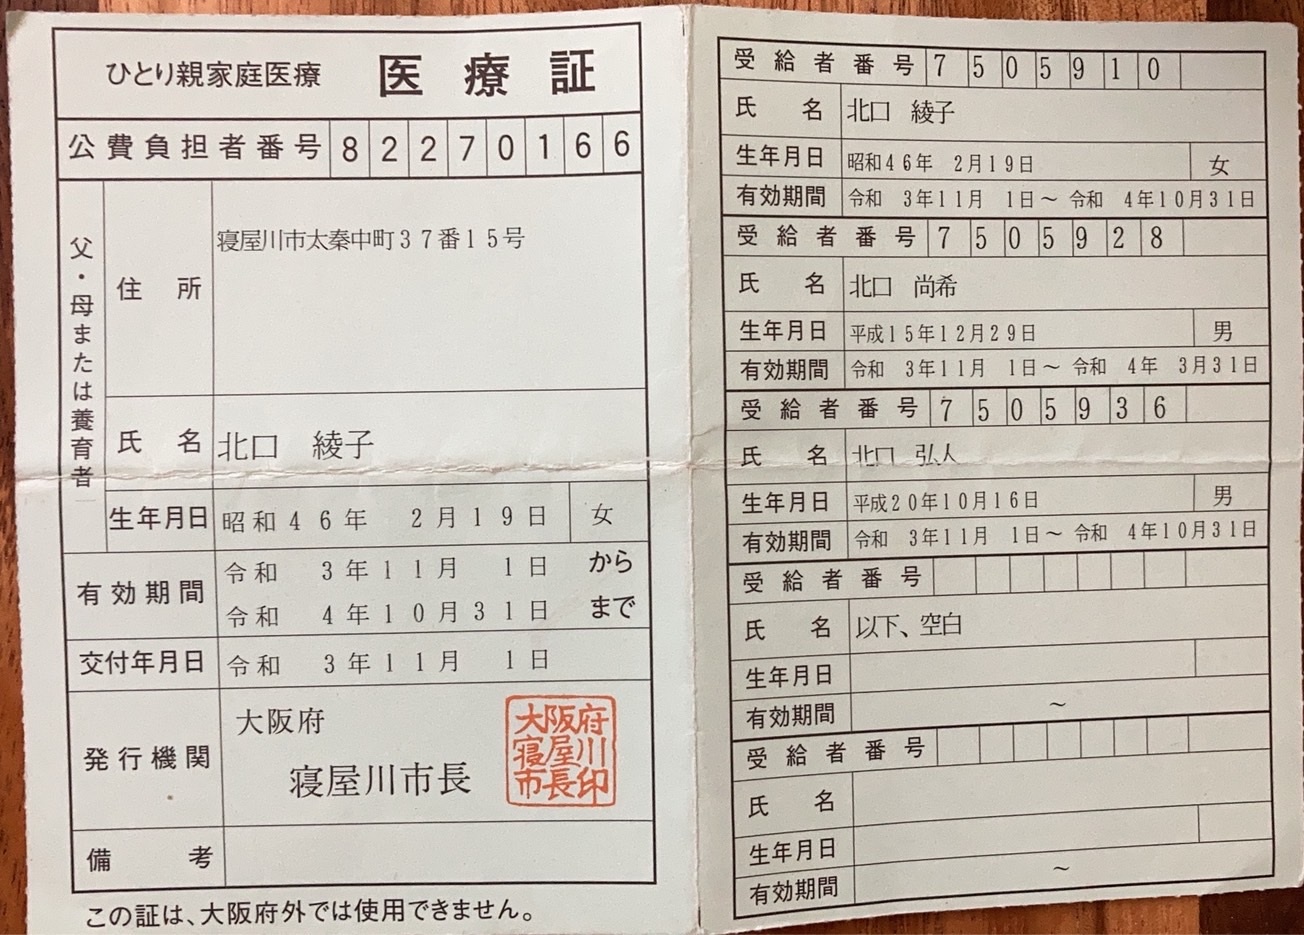 ひとり親家庭医療 医療証
公費負担者番号 82270166
父・母または養育者
住所 寝屋川市太秦中町37番15号
氏名 北口 綾子
生年月日 昭和46年 2月19日 女
有効期間 令和 3年11月 1日 から
令和 4年10月31日 まで
交付年月日 令和 3年11月 1日
発行機関 大阪府
寝屋川市長
大阪府
寝屋川
市長印
備考
この証は、大阪府外では使用できません。
受給者番号 7505910
氏名 北口 綾子
生年月日 昭和46年 2月19日 女
有効期間 令和 3年11月 1日~令和 4年10月31日
受給者番号 7505928
氏名 北口 尚希
生年月日 平成15年12月29日 男
有効期間 令和 3年11月 1日~令和 4年 3月31日
受給者番号 7505936
氏名 北口 弘人
生年月日 平成20年10月16日 男
有効期間 令和 3年11月 1日~令和 4年10月31日
受給者番号
氏名 以下、空白
生年月日
有効期間 ~
受給者番号
氏名
生年月日
有効期間 ~